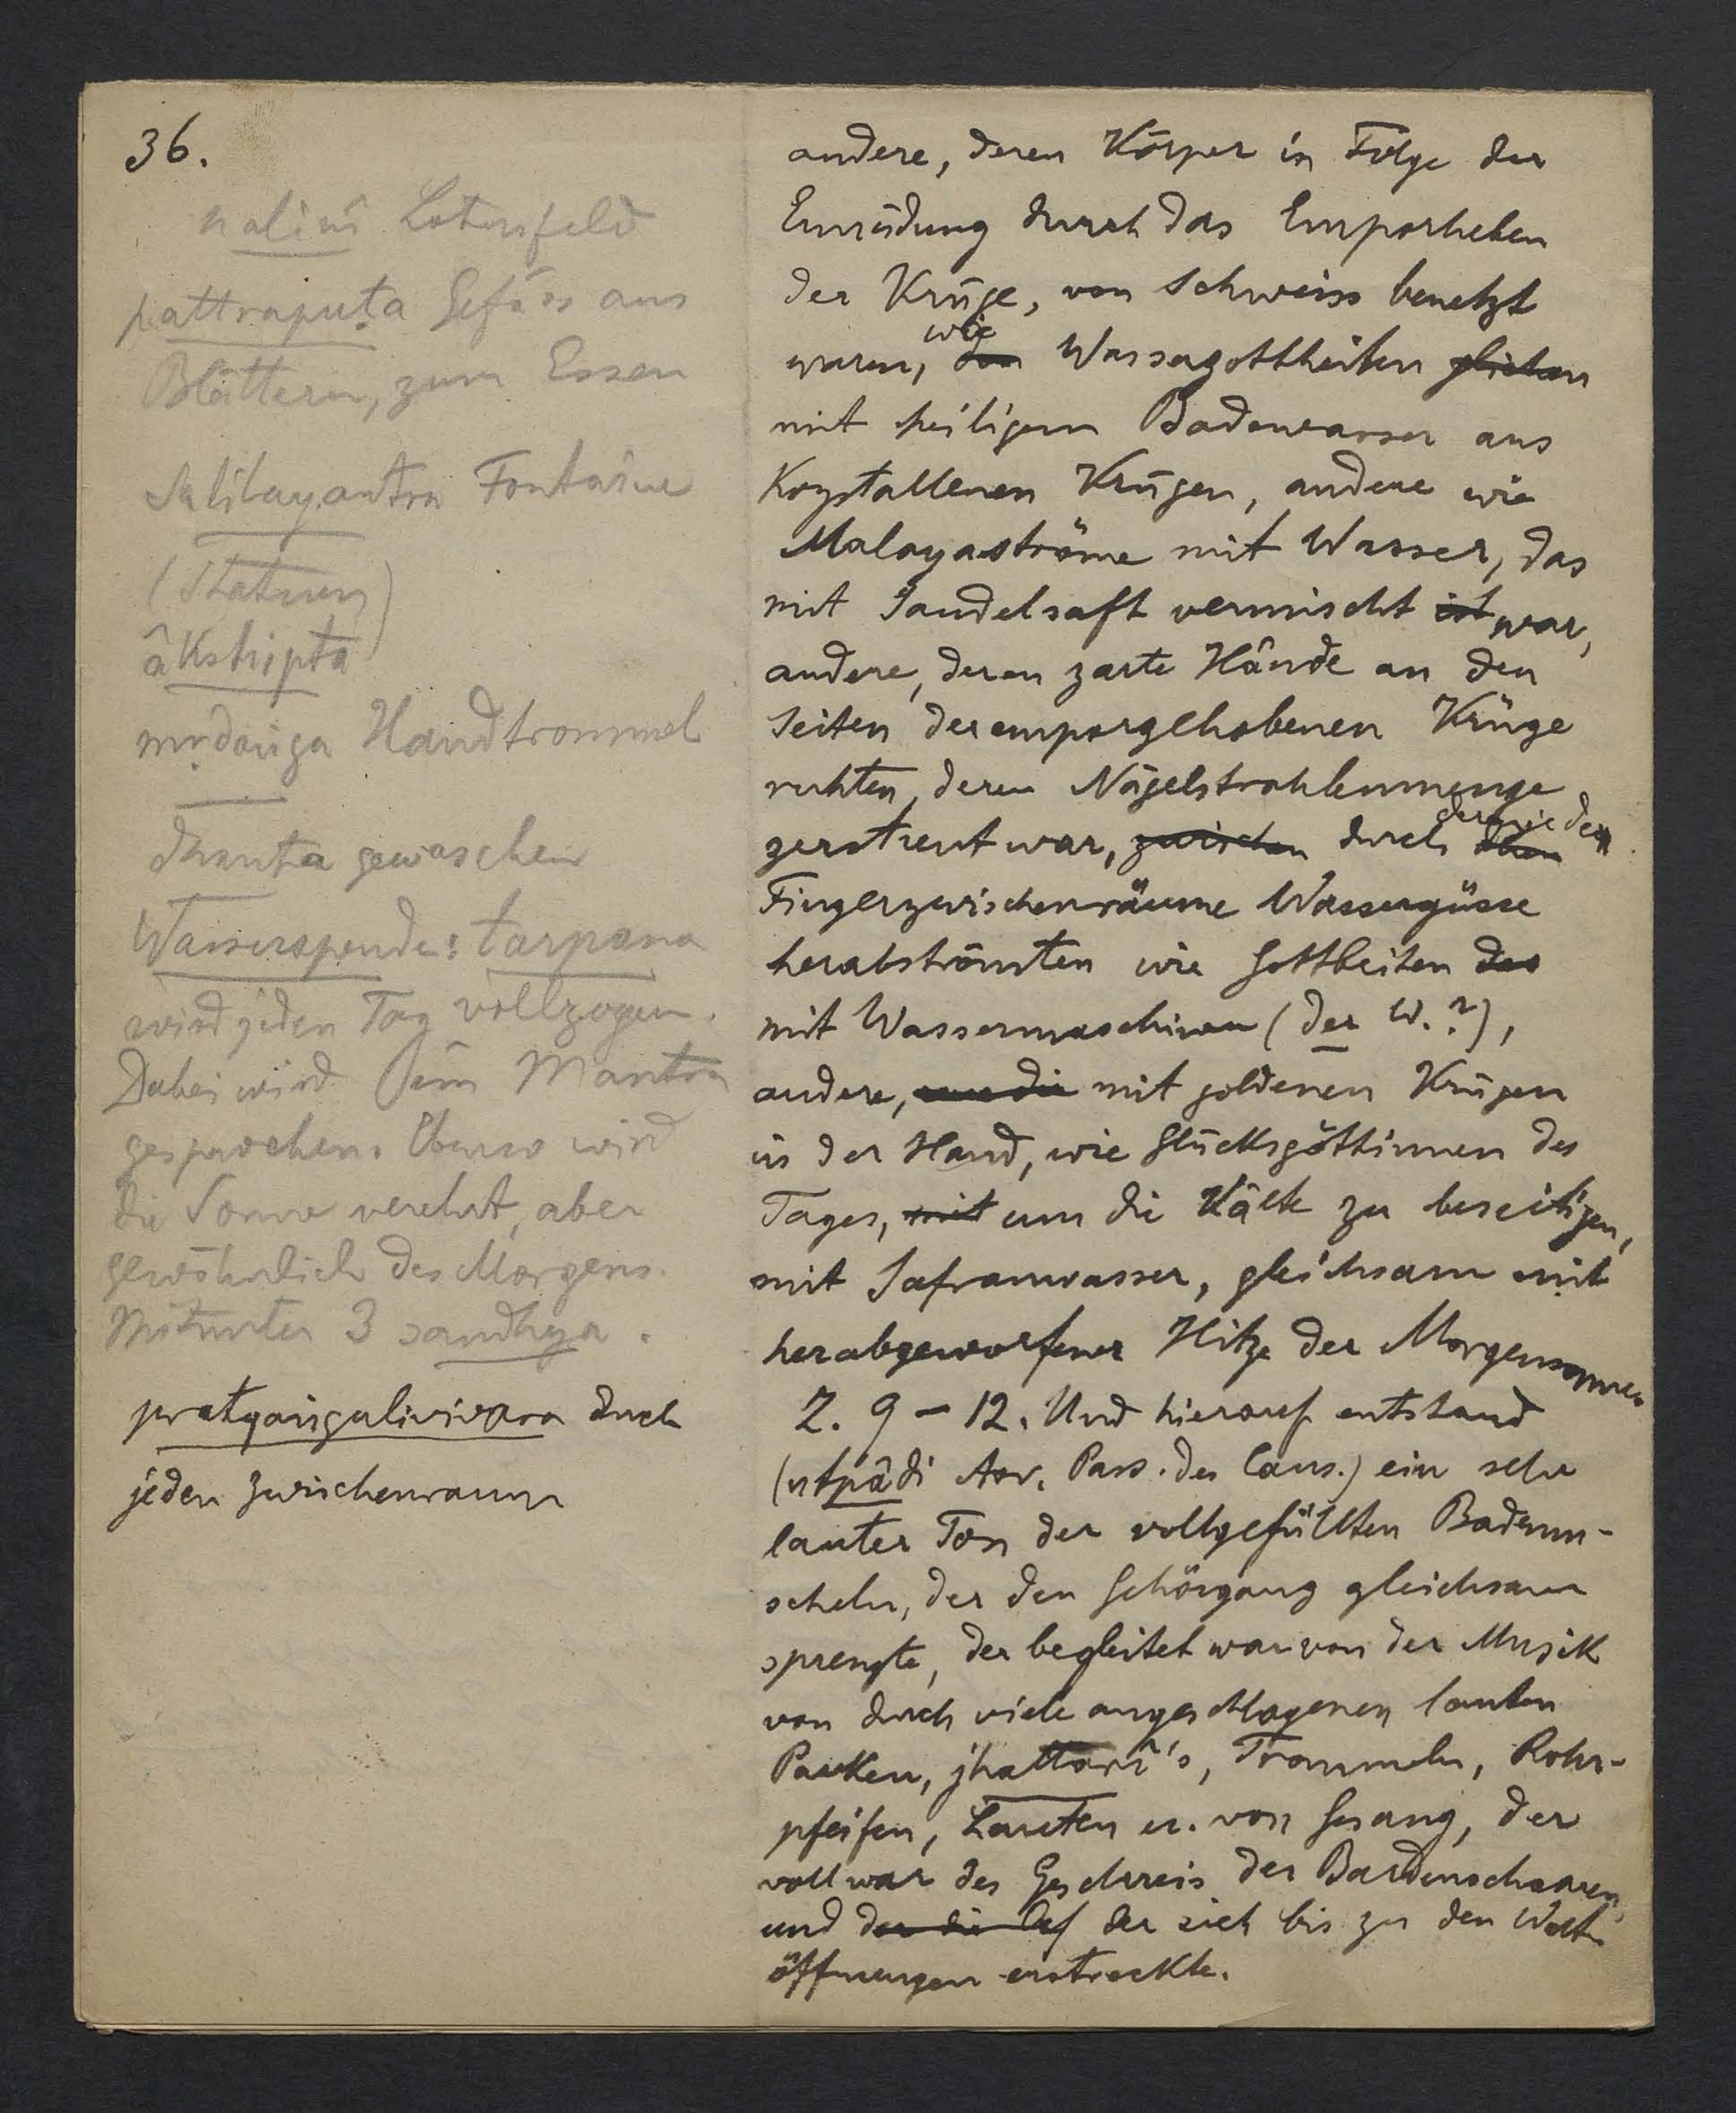 36.
nalinî Lotusfeld
pattrapuṭa Gefäss aus
Blättern, zum Essen
salilayantra Fontäine
(Statuen)
âkshipta
mṛdaṅga Handtrommel
dhauta gewaschen
Wasserspende: tarpana
wird jeden Tag vollzogen.
Dabei wird ein Mantra
gesprochen. Ebenso wird
die Sonne verehrt, aber
gewöhnlich des Morgens.
Mitunter 3 sandhya.
pratyaṅgulivivara durch
jeden Zwischenraum
andere, deren Körper in Folge der
Ermüdung durch das Emporheben
der Krüge, von Schweiss benetzt
waren, wie den Wassergottheiten glichen
mit heiligem Badewasser aus
Krystallenen Krügen, andere wie
Malayaströme mit Wasser, das
mit Sandelsaft vermischt ist war,
andere, deren zarte Hände an den
Seiten der emporgehobenen Krüge
ruhten, deren Nägelstrahlenmenge
zerstreut war, zwischen durch deren jeden
Fingerzwischenräume Wassergüsse
herabströmten wie Gottheiten des
mit Wassermaschinen (der W.?),
andere, mit goldenen Krügen
in der Hand, wie Glücksgöttinnen des
Tages, mit um die Kälte zu beseitigen,
mit Safranwasser, gleichsam mit
herabgeworfener Hitze der Morgensonne.
Z. 9 – 12. Und hierauf entstand
(utpâdi Aor. Pass. des Caus.) ein sehr
lauter Ton der vollgefüllten Bademu-
scheln, der den Gehörgang gleichsam
sprengte, der begleitet war von der Musik
von durch viele angeschlagenen lauten
Pauken, jhallarî's, Trommeln, Rohr-
pfeifen, Lauten u. von Gesang, der
voll war des Geschreis der Bardenschaaren,
und der die der sich bis zu den Welt-
öffnungen erstreckte.